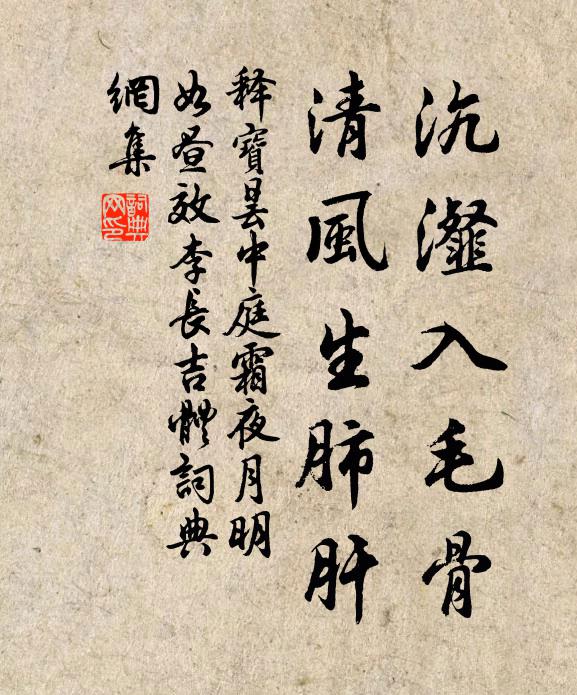 沆瀣入毛骨
清風生肺肝
释寶曇中庭霜夜月明
如晝效李長吉體詞典
網集
詞典
网印